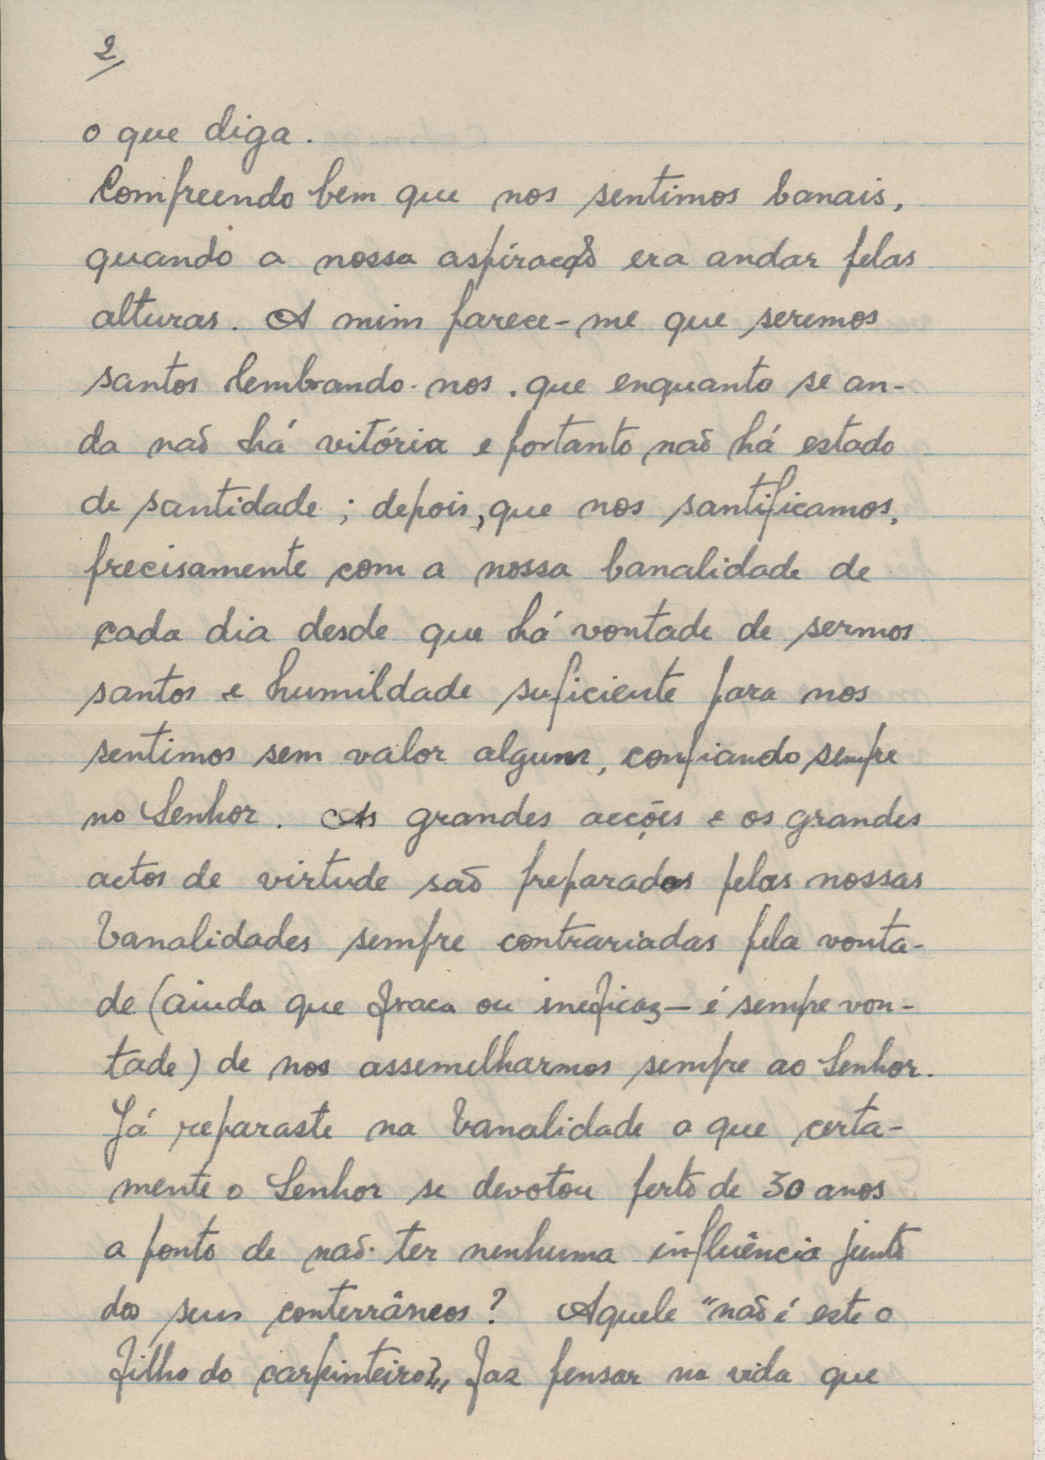 2/
o que diga.
Compreendo bem que nos sentimos banais,
quando a nossa aspiração era andar pelas
alturas. A mim parece-me que seremos
santos lembrando-nos, que enquanto se an-
da não há vitória e portanto não há estado
de santidade; depois, que nos santificamos,
precisamente com a nossa banalidade de
cada dia desde que há vontade de sermos
santos e humildade suficiente para nos
sentimos sem valor algum, confiando sempre
no Senhor. As grandes acções e os grandes
actos de virtude são preparados pelas nossas
banalidades sempre contrariadas pela vonta-
de (ainda que fraca ou ineficaz — é sempre von-
tade) de nos assemelharmos sempre ao Senhor.
Já reparaste na banalidade a que certa-
mente o Senhor se devotou perto de 30 anos
a ponto de não ter nenhuma influência junto
dos seus conterrâneos? Aquele "não é este o
filho do carpinteiro?" faz pensar na vida que